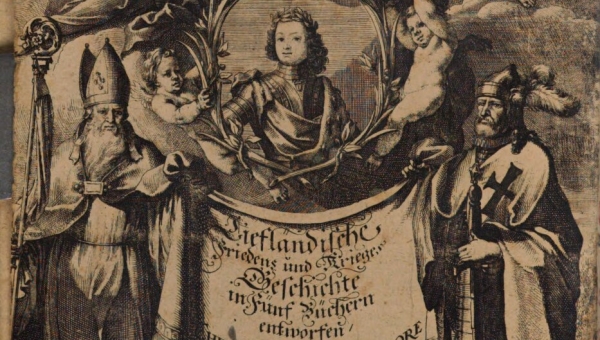 Liefländische
Friedens und Krieges
Geschichte
in Fünf Büchern
entworfen/
ORE